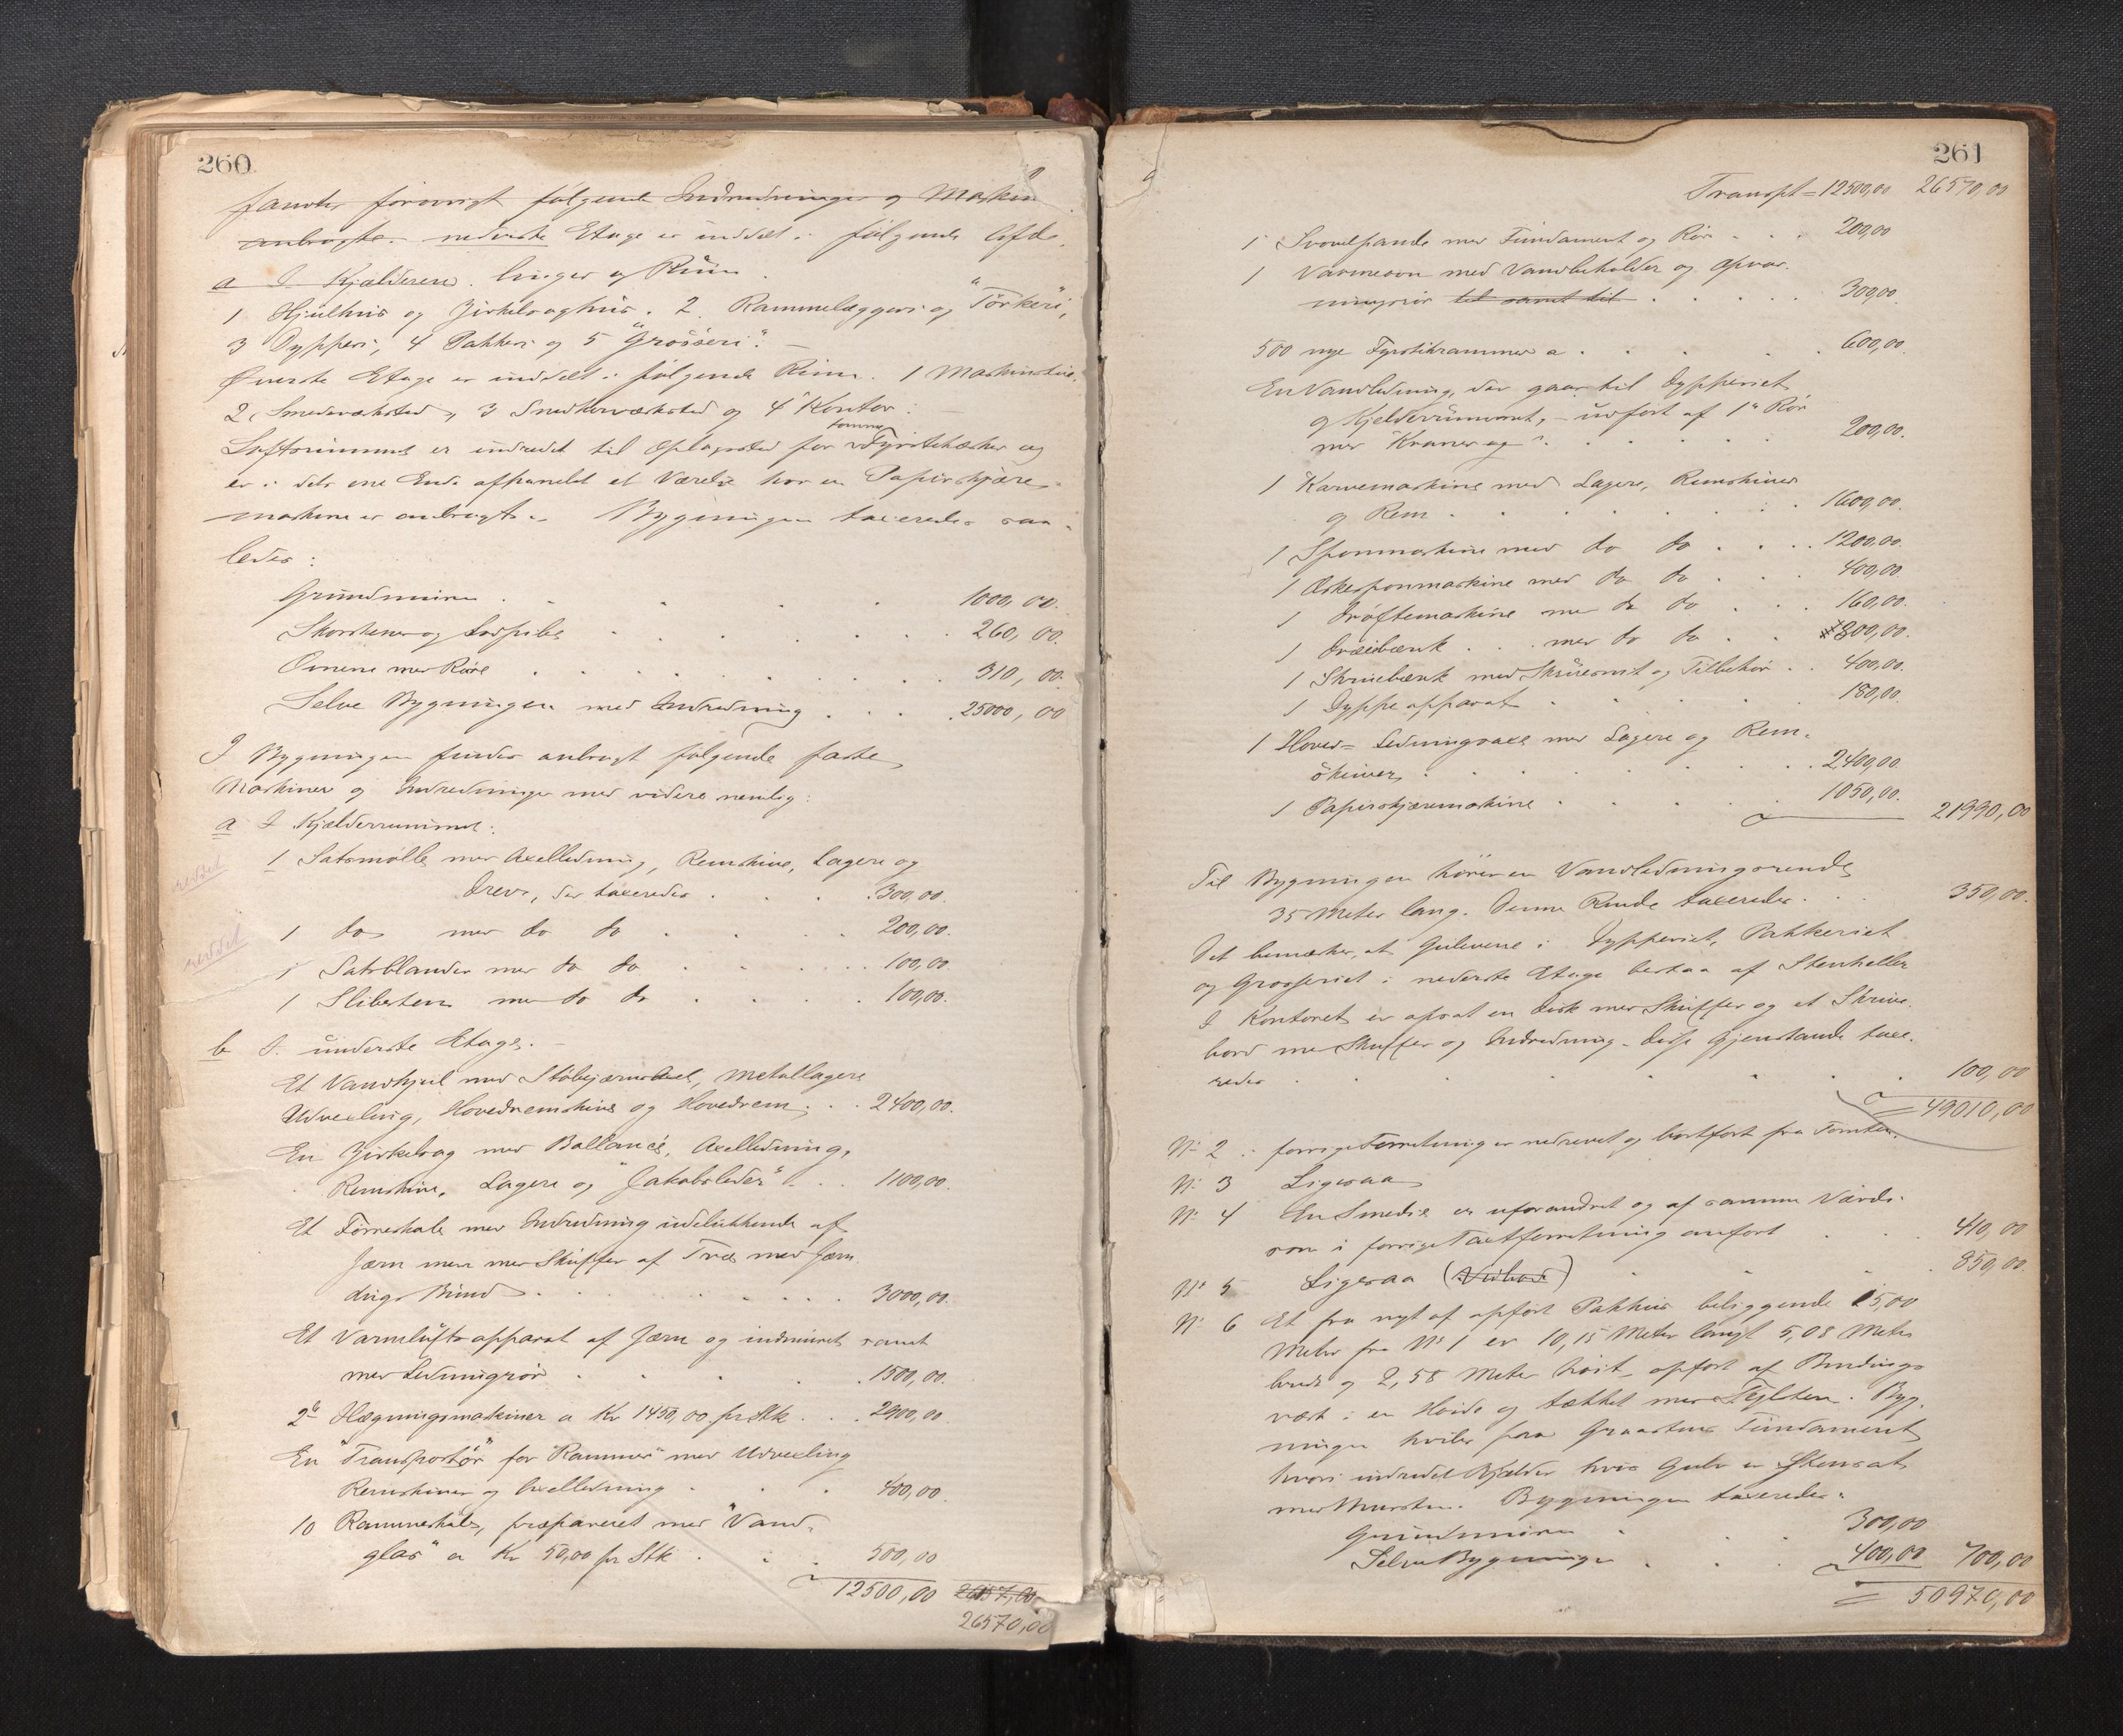 260
fandtes forövrigt følgende Indredninger og Maskin
anbragte. nederste Etage er inddelt i følgende Afde-
a I Kjælderen. linger og Rüm.
1 Hjulhus og Zirkelsaghüs. 2 Rammelæggeri og "Törkeri",
3 Dypperi, 4 Pakkeri og 5 "Grosseri".
Øverste Etage er inddelt i følgende Rüm. 1 Maskinstue,
2 Smedeværksted, 3 Snedkerværksted og 4 Kontor.
tomme
Loftsrümmet er indredet til Oplagssted for Fyrstikæsker og
er i dets ene Ende afpanelet et Værelse hvor en Papirskjære-
maskine er anbragt. Bygningen taxeredes saa-
ledes:
Grundmüren . . . . 1000,00.
Skorstene og Ildpiber . . . . 260,00.
Ovnene med Röre . . . . 310,00.
Selve Bygningen med Indredning . . . . 25000,00
I Bygningen findes anbragt følgende faste
Maskiner og Indredninger med videre nemlig:
a I Kjælderrummet:
1 Satsmölle med Axelledning, Remskive, Lagere og
Drev, der taxeredes . . . 300,00.
1 do med do do . . . 200,00.
1 Satsblander med do do . . . 100,00.
1 Slibesten med do do . . . 100,00.
b I underste Etage.
Et Vandhjul med Stöbejærnsaxel, Metallagere
Udvexling, Hovedremskive og Hovedrem . . 2400,00.
En Zirkelsag med Ballance, Axelledning,
Remskive, Lagere og "Jakobsleder" . . 1100,00.
Et Törreskab med Indredning udelukkende af
Jærn men med Skuffer af Træ med Jærn-
Bünd . . . . 3000,00.
Et Varmeluftsapparat af Jærn og indmüret samt
med Ledningsrör . . . . 1500,00.
2 Ilægningsmaskiner a Kr 1450,00 pr Stk . . 2900,00.
En "Transportör" for "Rammer" med Udvexling
Remskiver og Axelledning . . . 400,00.
10 Rammeskabe, præpareret med "Vand-
glas" a Kr 50,00 pr Stk . . . 500,00
12500,00
26570,00
261
Transpt = 12500,00 26570,00
1 Svovelpande med Fundament og Rör . . . 200,00
1 Varmeovn med Vandbeholder og Opvar-
ningsrör til samt til . . . . 300,00.
500 nye Fyrstikrammer a . . . . 600,00.
En Vandledning, der gaar til Dypperiet
og Kjelderrümmet, udfört af 1" Rör
med Kraner og . . . . 200,00.
1 Karvemaskine med Lagere, Remskiver
og Rem . . . . 1600,00.
1 Sponmaskine med do do . . . 1200,00.
1 Æskesponmaskine med do do . . . 400,00.
1 Dröftemaskine med do do . . . 160,00.
1 Dreiebænk . . . med do do . . 800,00.
1 Skruebænk med Skruesnit og Tilbehör . . 400,00.
1 Dyppeapparat . . . . 180,00.
1 Hoved-Ledningsaxe med Lagere og Rem-
skiver . . . . 2400,00.
1 Papirskjæremaskine . . . . 1050,00. 21990,00
Til Bygningen hörer en Vandledningsrende
35 Meter lang. Denne Rende taxeredes . . . 350,00.
Det bemærkes, at Gulvene i Dypperiet, Pakkeriet
og Grosseriet i nederste Etage bestaa af Stenheller
I Kontoret er opsat en Disk med Skuffer og et Skrive-
bord med Skuffer og Indredning. Disse Gjenstande taxe-
redes . . . . 100,00
= 49010,00
No 2 i forrige Forretning er nedrevet og bortfört fra Tomten.
No 3 Ligesaa
No 4 En Smedie er uforandret og af samme Værdi
som i forrige Taxtforretning anfört . . 410,00
No 5 Ligesaa (Vedbod) . . . 850,00.
No 6 Et fra nyt af opfört Pakhus beliggende 15,00
Meter fra No 1 er 10,15 Meter langt 5,08 Meter
bredt og 2,58 Meter höit, opfört af Bindings-
værk i en Höide og tækket med Teglsten. Byg-
ningen hviler paa Graastens Fundament
hvori indredet Kjælder hvis Gulv er Stensat
med Mursten. Bygningen taxeredes:
Grundmüren . . . 300,00
Selve Bygningen . . . 400,00 700,00
= 50970,00